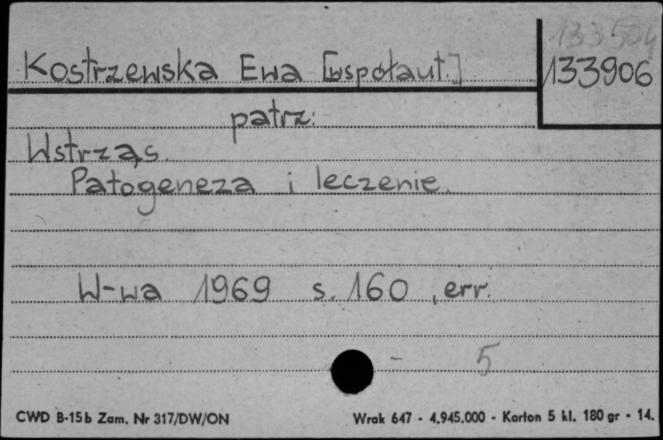 133504
Kostrzewska Ewa [współaut.]
133906
patrz:
Wstrząs.
Patogeneza i leczenie.
W-wa 1969 s. 160, err.
- 5
CWD B-15b Zam. Nr 317/DW/ON Wrak 647 - 4.945.000 - Karton 5 kl. 180 gr - 14.